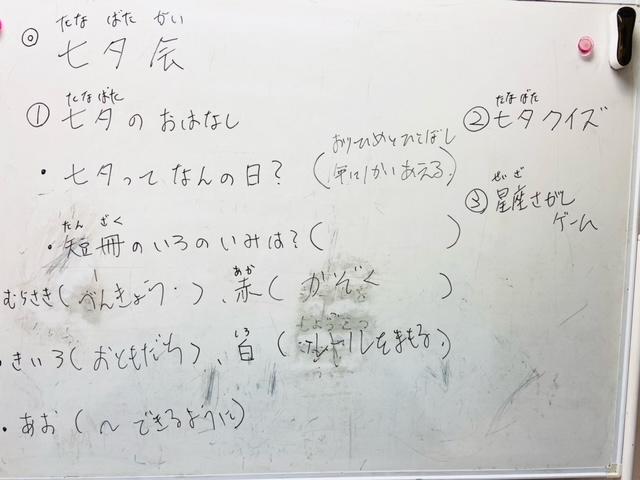 たな ばた かい
◎ 七夕会
たなばた
① 七夕のおはなし
・七夕ってなんの日?
おりひめとひこぼし
(年に1かいあえる。)
たん ざく
・短冊のいろのいみは?( )
むらさき(べんきょう・)、赤(かぞく )
あか
・きいろ(おともだち)、白(ルールをまもる。)
しろ
・あお(〜できるように)
たなばた
② 七夕クイズ
せいざ
③ 星座さがし
ゲーム